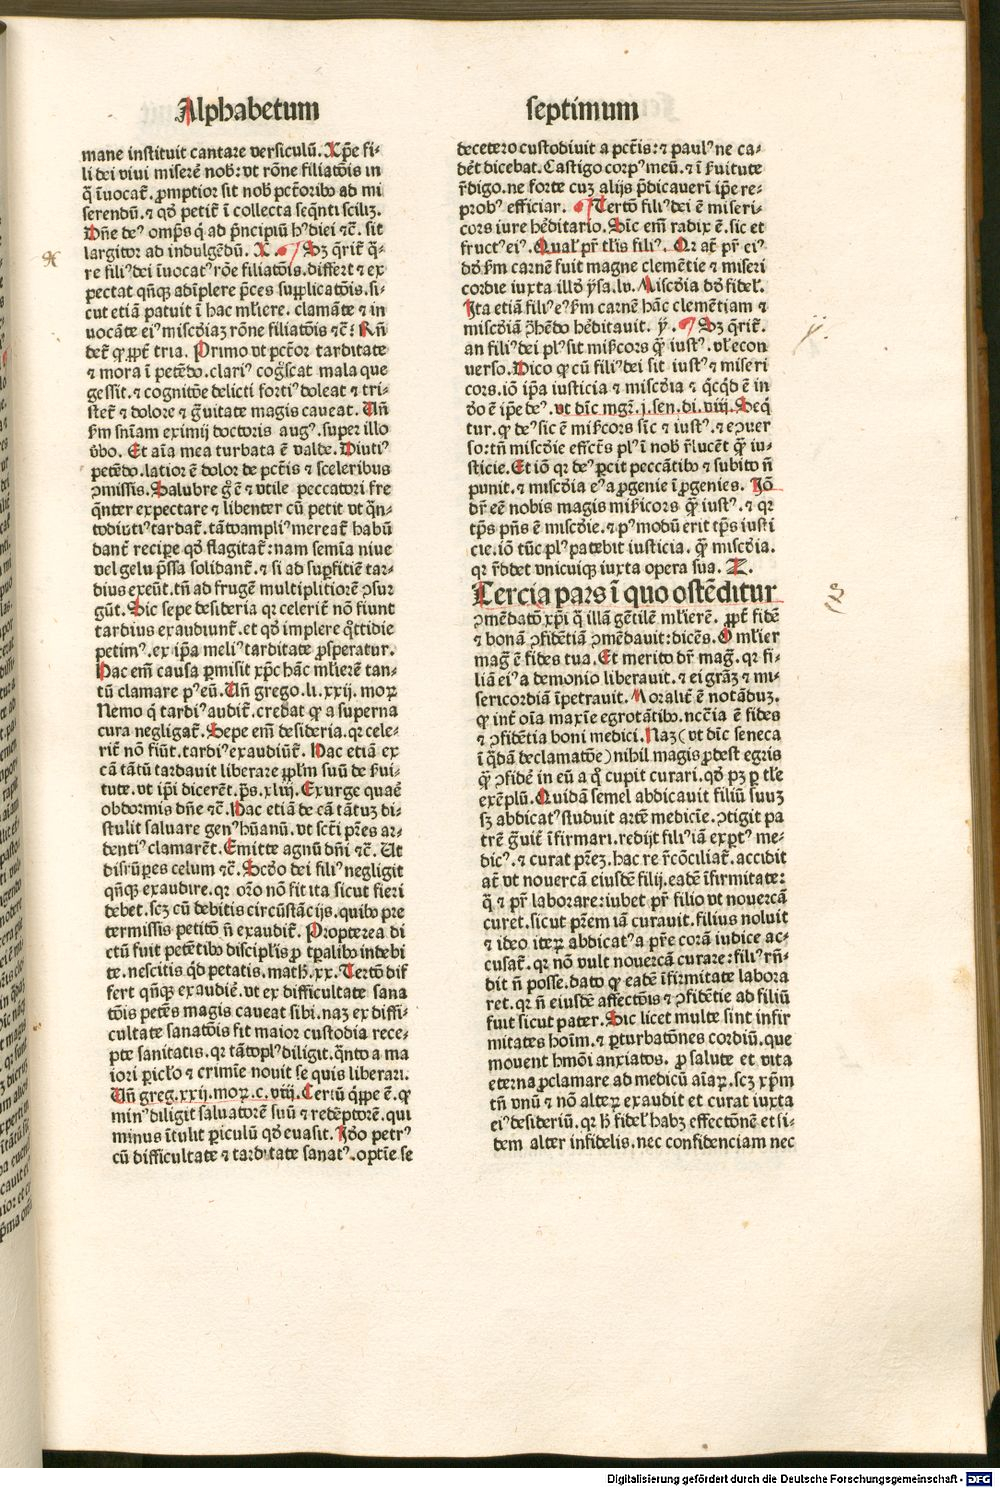 Alphabetum
mane instituit cantare versiculū. Xp̄e fi⸗
li dei vivi miserē nob: vt rōne filiatōis in
q̄ īuocat̄. ꝓmptior sit nob pctōribꝰ ad mi
serendū. ⁊ qd̄ petit̄ ī collecta seqn̄ti scilicꝫ.
Dn̄e deꝰ omp̄s q̄ ad p̄ncipiū hꝰ diei ⁊c̄. sit
largitor ad indulgēdū. X. ¶ Sꝫ qrit̄ q̄⸗
re filiꝰ dei īuocatꝰ rōe filiatōis. differt ⁊ ex
pectat qn̄qꝫ adīplere p̄ces supplicatōis. si⸗
cut etiā patuit ī hac ml̄iere. clamāte ⁊ in
uocāte eiꝰ miscd̄iaꝫ rōne filiatōis ⁊c̄: Rn̄
det̄ ꝙ ꝓpt̄ tria. Primo vt pctōr tarditate
⁊ mora ī petēdo. clariꝰ coḡscat mala que
gessit. ⁊ cognitōe delicti fortiꝰ doleat ⁊ tri⸗
stet̄ ⁊ dolore ⁊ ḡuitate magis caueat. Vn̄
ẜm sn̄iam eximij doctoris augꝰ. super illo
v̄bo. Et aīa mea turbata ē valde. Diutiꝰ
petēdo. latior ē dolor de pctīs ⁊ sceleribus
ꝯmissis. Salubre g̊ ē ⁊ vtile peccatori fre
q̄nter expectare ⁊ libenter cū petit vt q̄n⸗
to diutiꝰ tardat̄. tāto ampliꝰ mereat̄ habū
dant̄ recipe qd̄ flagitat̄: nam semīa niue
vel gelu p̄ssa solidant̄. ⁊ si ad supfitiē tar⸗
dius exeūt. tn̄ ad frugē multiplitiorē ꝯsur
gūt. Sic sepe desideria qr celerit̄ nō fiunt
tardius exaudiunt̄. et qd̄ implere q̊ttidie
petimꝰ. ex ip̄a meliꝰ tarditate ꝓsperatur.
Hac em̄ causa ꝑmisit xp̄c hāc ml̄ierē tan⸗
tū clamare pꝰ eū. Vn̄ grego. li. xxij. moꝝ
Nemo q̄ tardiꝰ audit̄. credat ꝙ a superna
cura negligat̄. Sepe em̄ desideria. qr cele⸗
rit̄ nō fiūt. tardiꝰ exaudiūt̄. Hac etiā ex
cā tātū tardauit liberare ppl̄m suū de ẜui⸗
tute. vt ip̄i dicerēt. ps̄. xliij. Exurge quaē
obdormis dn̄e ⁊c̄. Hac etiā de cā tātuꝫ di⸗
stulit saluare genꝰ hūanū. vt sct̄i pr̄es ar⸗
dentiꝰ clamarēt. Emitte agnū dn̄i ⁊c̄. Vt
disrūpes celum ⁊c̄. Scd̄o dei filiꝰ negligit
qn̄qꝫ exaudire. qr or̄o nō fit ita sicut fieri
debet. scꝫ cū debitis circūstācijs. quibꝰ pre
termissis petitō n̄ exaudit̄. Propterea di
ctū fuit petētibꝰ disciplīs ꝓ tp̄alibꝰ indebi
te. nescitis qd̄ petatis. math̄. xx. Tertō dif
fert qn̄qꝫ exaudiē. vt ex difficultate sana
tōis petēs magis caueat sibi. naꝫ ex diffi⸗
cultate sanatōis fit maior custodia rece⸗
pte sanitatis. qr tātoplꝰ diligit. qn̄to a ma
iori piclo ⁊ crimīe novit se quis liberari.
Vn̄ greg. xxij. moꝝ. c. viij. Certū q̄ppe ē. ꝙ
minꝰ diligit saluatorē suū ⁊ redēptorē. qui
minus ītulit periculū qd̄ euasit. Iō petrꝰ
cū difficultate ⁊ tarditate sanatꝰ. optīe se
septimum
decetero custodiuit a pctīs: ⁊ paulꝰ ne ca⸗
dēt dicebat. Castigo corpꝰ meū. ⁊ ī ẜuitute
r̄digo. ne forte cuꝫ alijs p̄dicauerī ip̄e re⸗
probꝰ efficiar. ¶ Tertō filiꝰ dei ē miseri⸗
cors iure hēditario. Sic em̄ radix ē. sic et
fructꝰ eiꝰ. Qual̓ pr̄ tl̓is filiꝰ. Qr at̄ pr̄ eiꝰ
dō ẜm carnē fuit magne clemētie ⁊ miseri
cordie iuxta illd̓ ysa. lv. Miscd̄ia dō fidel̓.
Ita etiā filiꝰ eꝰ ẜm carnē hāc clemētiam ⁊
miscd̄iā ꝯhēdo hēditavit. y. ¶ Sꝫ qrit̄.
an filiꝰ dei plꝰ sit mīcors q̄ iustꝰ. vl̓ econ
uerso. Dico ꝙ cū filiꝰ dei sit iustꝰ ⁊ miseri
cors. iō ip̄a iusticia ⁊ miscd̄ia ⁊ qcqd̓ ē in
dō ē ip̄e deꝰ. vt dic̄ mgr̄. j. sen. di. viij. Seq̄
tur. ꝙ deꝰ sic ē mīcors sīc ⁊ iustꝰ. ⁊ eꝯuer
so: tn̄ miscd̄ie effctūs plꝰ ī nob r̄lucēt q̄ iu⸗
sticie. Et iō qr deꝰ ꝑcit peccātibꝰ ⁊ subito n̄
punit. ⁊ miscd̄ia eꝰ a ꝓgenie ī ꝓgenies. Iō
dr̄ eē nobis magis mīcors q̄ iustꝰ. ⁊ qr
tp̄s pn̄s ē miscd̄ie. ⁊ pꝰ modū erit tp̄s iusti
cie. iō tūc plꝰ patebit iusticia. q̄ miscd̄ia.
qr r̄ddet vnicuiqꝫ iuxta opera sua. Z.
Tercia pars ī quo ostēditur
ꝯmēdatō xp̄i q̄ illā gētilē ml̄ierē. ꝓpt̄ fidē
⁊ bonā ꝯfidētiā ꝯmēdauit: dicēs. O ml̄ier
maḡ ē fides tua. Et merito dr̄ maḡ. qr fi⸗
liā eiꝰ a demonio liberauit. ⁊ ei grāꝫ ⁊ mi⸗
sericordiā īpetrauit. Moralit̄ ē notāduꝫ.
ꝙ int̄ oīa maxīe egrotātibꝰ. ncc̄ia ē fides
⁊ ꝯfidētia boni medici. Naꝫ (vt dic̄ seneca
ī q̄dā declamatōe) nihil magis ꝓdest egris
q̄ ꝯfidē in eū a q̄ cupit curari. qd̓ pꝫ ꝑ tl̓e
exēplū. Quidā semel abdicauit filiū suuꝫ
sꝫ abdicatꝰ studuit artē medicīe. ꝯtigit pa
trē ḡuit̄ īfirmari. redijt filiꝰ iā exptꝰ me⸗
dicꝰ. ⁊ curat pr̄eꝫ. hac re r̄cōciliat̄. accidit
at̄ vt nouercā eiusdē filij. eadē īfirmitate:
q̄ ⁊ pr̄ laborare: iubet pr̄ filio vt nouercā
curet. sicut pr̄em iā curauit. filius noluit
⁊ ideo iteꝝ abdicatꝰ a pr̄e corā iudice ac⸗
cusat̄. qr nō vult nouercā curare: filiꝰ rn̄⸗
dit n̄ posse. dato ꝙ eadē īfirmitate labora
ret. qr n̄ eiusdē affectōis ⁊ ꝯfidētie ad filiū
fuit sicut pater. Sic licet multe sint infir
mitates hoīm. ⁊ ꝑturbatōnes cordiū. que
mouent hmōi anxiatos. ꝓ salute et vita
eterna ꝓclamare ad medicū aīaꝝ. scꝫ xp̄m
tn̄ vnū ⁊ nō alteꝝ exaudit et curat iuxta
eiꝰ desideriū. qr h̄ fidel̓ habꝫ effectōnē et fi⸗
dem alter infidelis. nec confidenciam nec
Digitalisierung gefördert durch die Deutsche Forschungsgemeinschaft - DFG